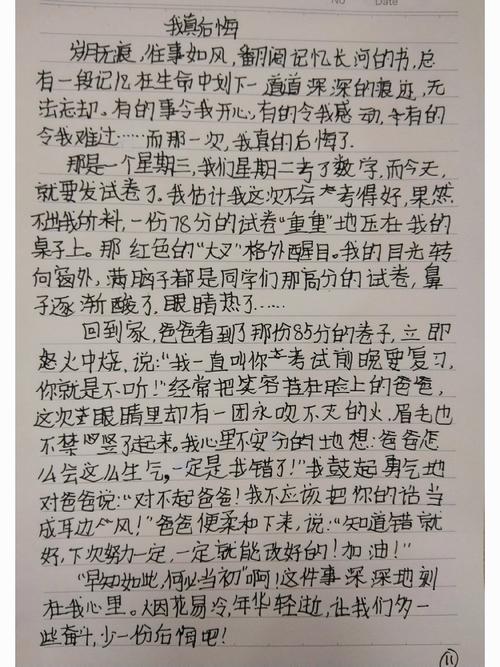 No Date
我真后悔
岁月无痕,往事如风,翻阅记忆长河的书,总
有一段记忆在生命中划下一道道深深的痕迹,无
法忘却。有的事令我开心,有的令我感动,有的
令我难过……而那一次,我真的后悔了.
那是一个星期三,我们星期二考了数学,而今天,
就要发试卷了。我估计我这次不会考得好,果然
不出我所料,一份78分的试卷“重重”地压在我的
桌子上。那红色的“大叉”格外醒目。我的目光转
向窗外,满脑子都是同学们那高分的试卷,鼻
子逐渐酸了,眼睛热了……
回到家,爸爸看到了那份85分的卷子,立即
怒火中烧,说:“我一直叫你考试前晚要复习,
你就是不听!”经常把笑容挂在脸上的爸爸,
这次眼睛里却有一团永吹不灭的火.眉毛也
不禁竖了起来。我心里不安分的地想:爸爸怎
么会这么生气,一定是我错了!”我鼓起勇气地
对爸爸说:“对不起爸爸!我不应该把你的话当
成耳边风!”爸爸便柔和下来,说:“知道错就
好,下次努力一定,一定就能改好的!加油!”
“早知如此,何必当初”啊!这件事深深地刻
在我心里。烟花易冷,年华轻逝,让我们多一
些奋斗,少一份后悔吧!
11